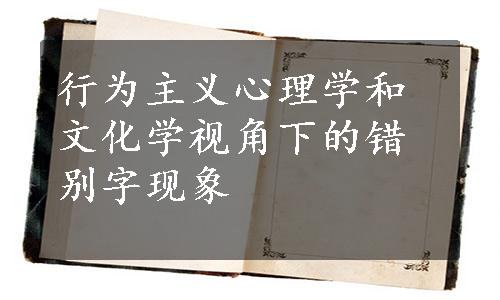 行为主义心理学和
文化学视角下的错
别字现象